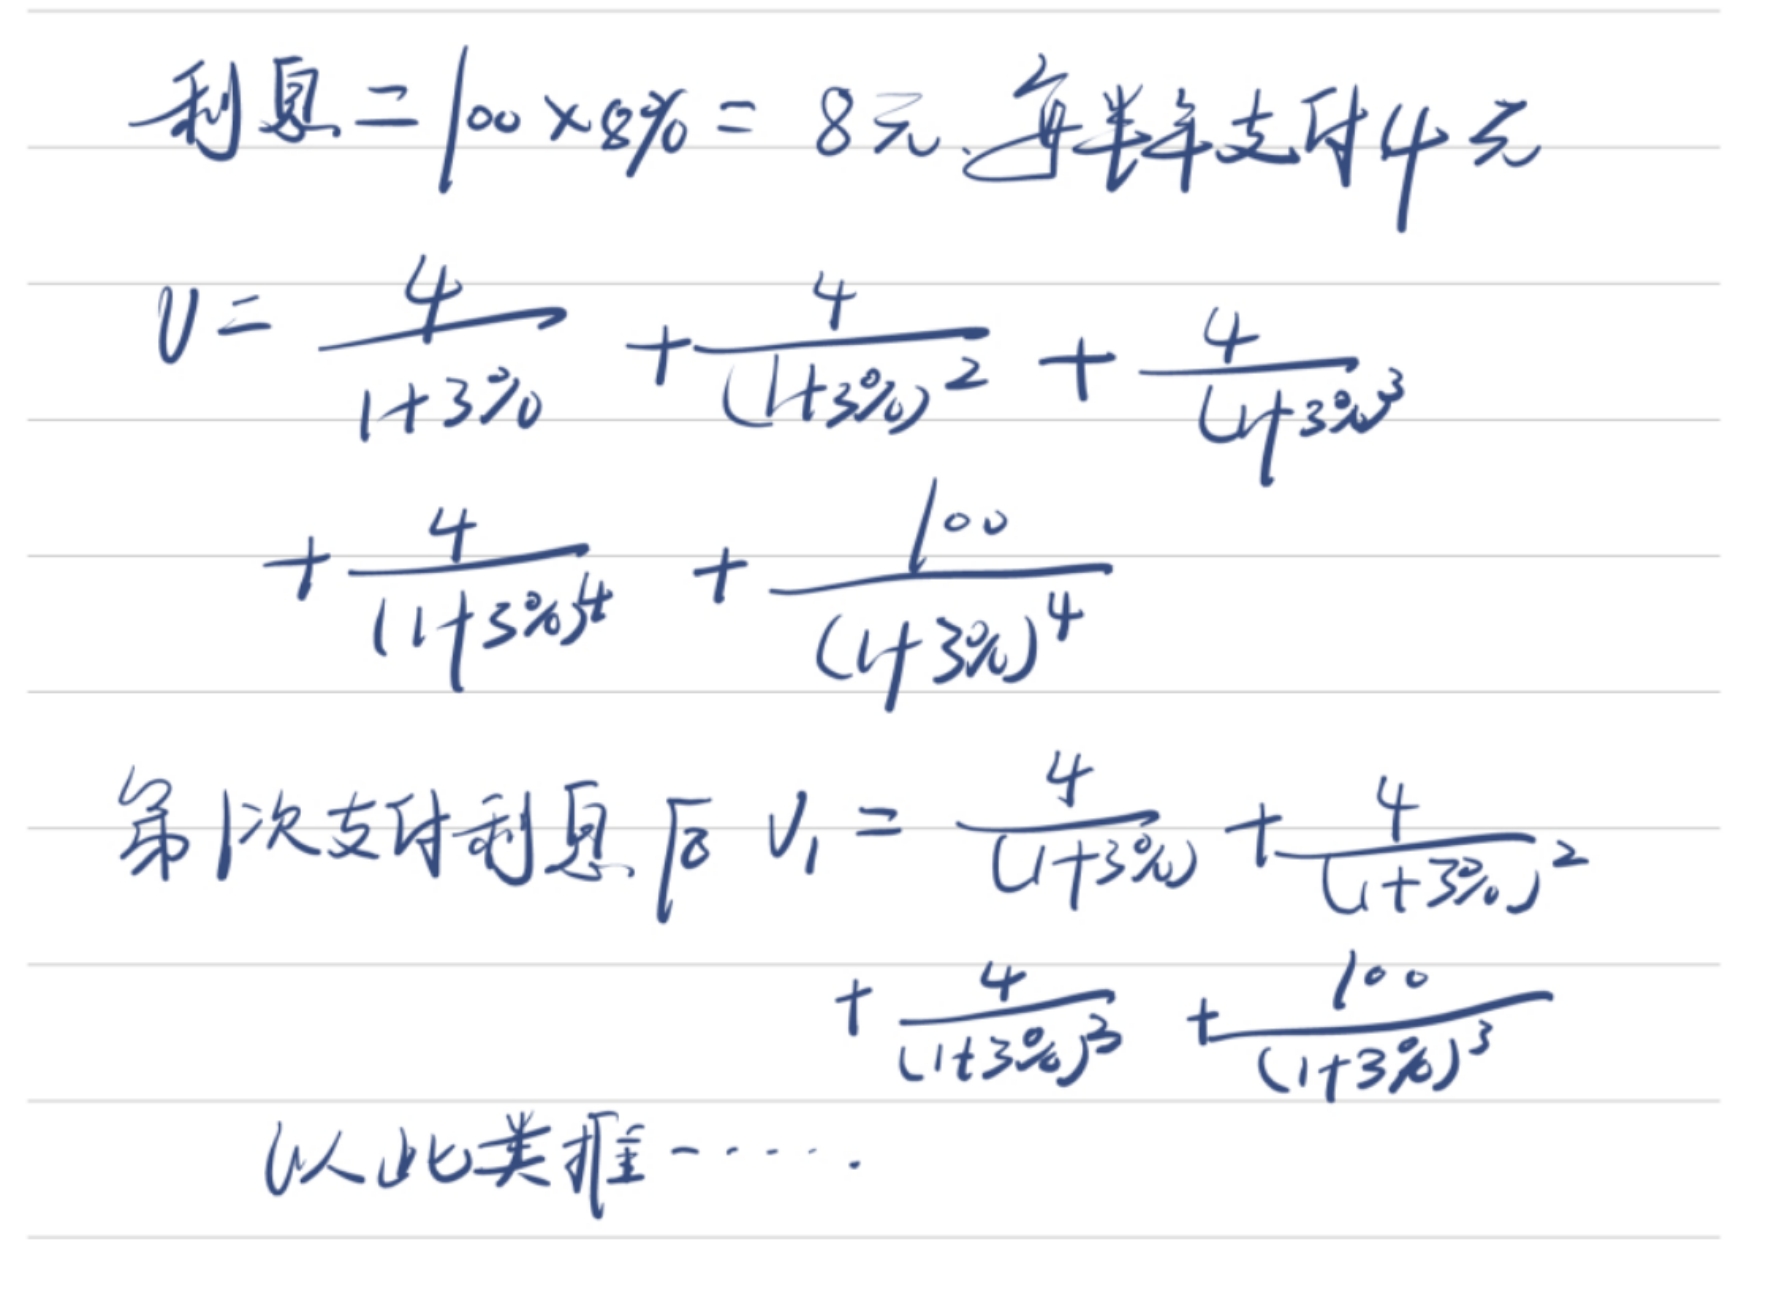 利息=100×8%=8元.每半年支付4元
V = 4/(1+3%) + 4/(1+3%)^2 + 4/(1+3%)^3
+ 4/(1+3%)^4 + 100/(1+3%)^4
第1次支付利息后 V₁ = 4/(1+3%) + 4/(1+3%)^2
+ 4/(1+3%)^3 + 100/(1+3%)^3
以此类推······